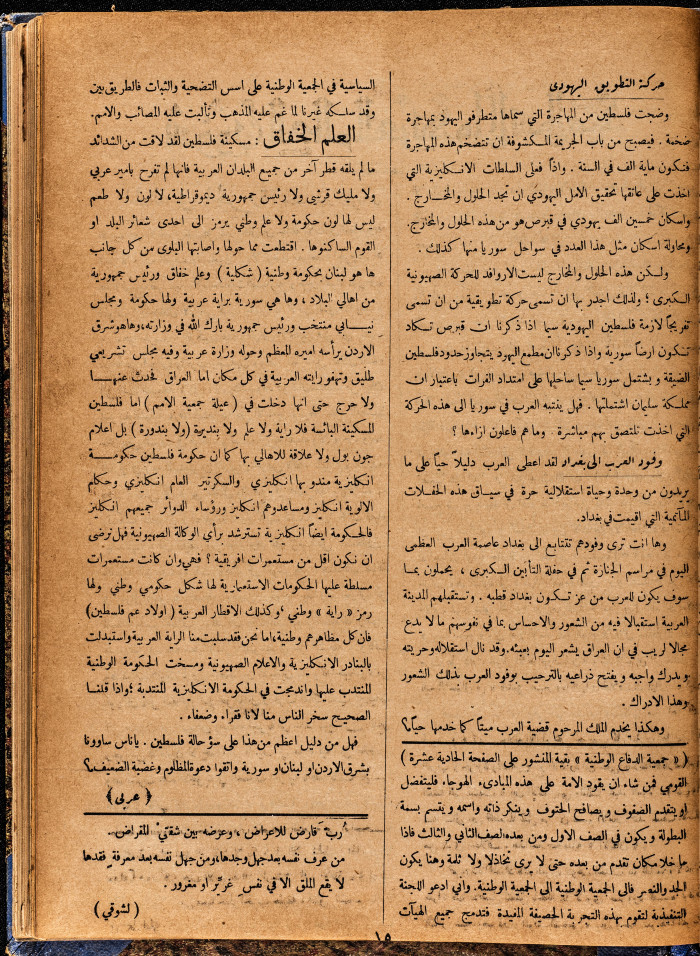 حركة التطويق اليهودى
وضجت فلسطين من المهاجرة التي سماها متطرفو اليهود بمهاجرة
ضخمة . فيصبح من باب الجريمة المكشوفة ان تتضخم هذه المهاجرة
فتكون ماية الف في السنة . واذاً فعلى السلطات الانكليزية التي
اخذت على عاتقها تحقيق الامل اليهودي ان تجد الحلول والمخارج .
واسكان خمسين الف يهودي في قبرص هو من هذه الحلول والمخازج.
ومحاولة اسكان مثل هذا العدد في سواحل سوريا منها كذلك .
ولكن هذه الحلول والمخارج ليست الا روافد للحركة الصهيونية
الكبرى ؛ ولذلك اجدر بها ان تسمى حركة تطويقية من ان تسمى
تفريجاً لازمة فلسطين اليهودية سيما اذا ذكرنا ان قبرص تكاد
تكون ارضاً سورية واذا ذكرنا ان مطمع اليهود يتجاوز حدود فلسطين
الضيقة و يشتمل سوريا سيما ساحلها على امتداد الفرات باعتبار ان
مملكة سليمان اشتملتها . فهل ينتبه العرب في سوريا الى هذه الحركة
التي اخذت تلتصق بهم مباشرة . وما هم فاعلون ازاءها ؟
وفود العرب الى بغداد لقد اعطى العرب دليلاً حياً على ما
يريدون من وحدة وحياة استقلالية حرة في سياق هذه الحفلات
المأتمية التي اقيمت في بغداد.
وها انت ترى وفودهم تتتابع الى بغداد عاصمة العرب العظمى
اليوم في مراسم الجنازة ثم في حفلة التأبين الكبرى ، يحملون بما
سوف يكون للعرب من عز تكون بغداد قطبه . وتستقبلهم المدينة
العربية استقبالا فيه من الشعور والاحساس بما في نفوسهم ما لا يدع
مجالا لريب في ان العراق يشعر اليوم ببعثه. وقد نال استقلاله وحريته
ويدرك واجبه و يفتح ذراعيه بالترحيب بوفود العرب بذلك الشعور
وهذا الادراك .
وهكذا يخدم الملك المرحوم قضية العرب ميتاً كما خدمها حياً ؟
( « جمعية الدفاع الوطنية » بقية المنشور على الصفحة الحادية عشرة )
القومي فمن شاء ان يقود الامة على هذه المبادىء الهوجاء فليتفضل
او يتقدم الصفوف و يصافح الحتوف و ينكر ذاته واسمه و يقسم بسمة
البطولة و يكون في الصف الاول ومن بعده الصف الثاني والثالث فاذا
ما خلا مكان تقدم من بعده حتى لا يرى تخاذلا ولا ثلمة وهنا يكون
الجد والنصر فالى الجمعية الوطنية الى الجمعية الوطنية. واني ادعو اللجنة
التنفيذية لتقوم بهذه التجربة الحصيفة المفيدة فتدمج جميع الهيآت
السياسية في الجمعية الوطنية على اسس التضحية والثبات فالطريق بين
وقد سلكه غيرنا لما غم عليه المذهب وتألبت عليه المصائب والامم.
العلم الخفاق : مسكينة فلسطين لقد لاقت من الشدائد
ما لم يلقه قطر آخر من جميع البلدان العربية فانها لم تفرح بامير عربي
ولا مليك قرشي ولا رئيس جمهورية ديموقراطية، لا لون ولا طعم
ليس لها لون حكومة ولا علم وطني يرمز الى احدى شعائر البلد او
القوم الساكنوها . اقتطعت مما حولها واصابتها البلوى من كل جانب
ها هو لبنان بحكومة وطنية ( شكلية ) وعلم خفاق ورئيس جمهورية
من اهالي البلاد ، وها هي سورية براية عربية ولها حكومة ومجلس
نيابي منتخب ورئيس جمهورية بارك الله في وزارته، وها هو شرق
الاردن يرأسه اميره المعظم وحوله وزارة عربية وفيه مجلس تشريعي
طليق وتهفو رايته العربية في كل مكان اما العراق فحدث عنها
ولا حرج حتى انها دخلت في ( عيلة جمعية الامم ) اما فلسطين
المسكينة البائسة فلا راية ولا علم ولا بنديرة ( ولا بندورة ) بل اعلام
جون بول ولا علاقة للاهالي بها كما ان حكومة فلسطين حكومة
انكليزية مندوبها انكليزي والسكرتير العام انكليزي وحكام
الالوية انكليز ومساعدوهم انكليز ورؤساء الدوائر جميعهم انكليز
فالحكومة ايضاً انكليزية تسترشد برأي الوكالة الصهيونية فهل نرضى
ان نكون اقل من مستعمرات افريقية ؟ فهي وان كانت مستعمرات
مسلطة عليها الحكومات الاستعمارية لها شكل حكومي وطني ولها
رمز « راية » وطني ، وكذلك الاقطار العربية ( اولاد عم فلسطين )
فان كل مظاهرهم وطنية، اما نحن فقد سلبت منا الراية العربية واستبدلت
بالبنادر الانكليزية والاعلام الصهيونية ومسخت الحكومة الوطنية
المنتدب عليها واندمجت في الحكومة الانكليزية المنتدبة ؛ واذا قلنا
الصحيح سخر الناس منا لاننا فقراء وضعفاء .
فهل من دليل اعظم من هذا على سؤ حالة فلسطين . ياناس ساوونا
بشرق الاردن او لبنان او سورية واتقوا دعوة المظلوم وغضبة الضعيف ؟
( عربى )
رب قارض للاعراض ، وعرضه بين شقتي المقراض.
من عرف نفسه بعد جهل وجدها، ومن جهل نفسه بعد معرفة فقدها
لا يقع الملق الا في نفس غرّير او مغرور .
( لشوقي )
١٥